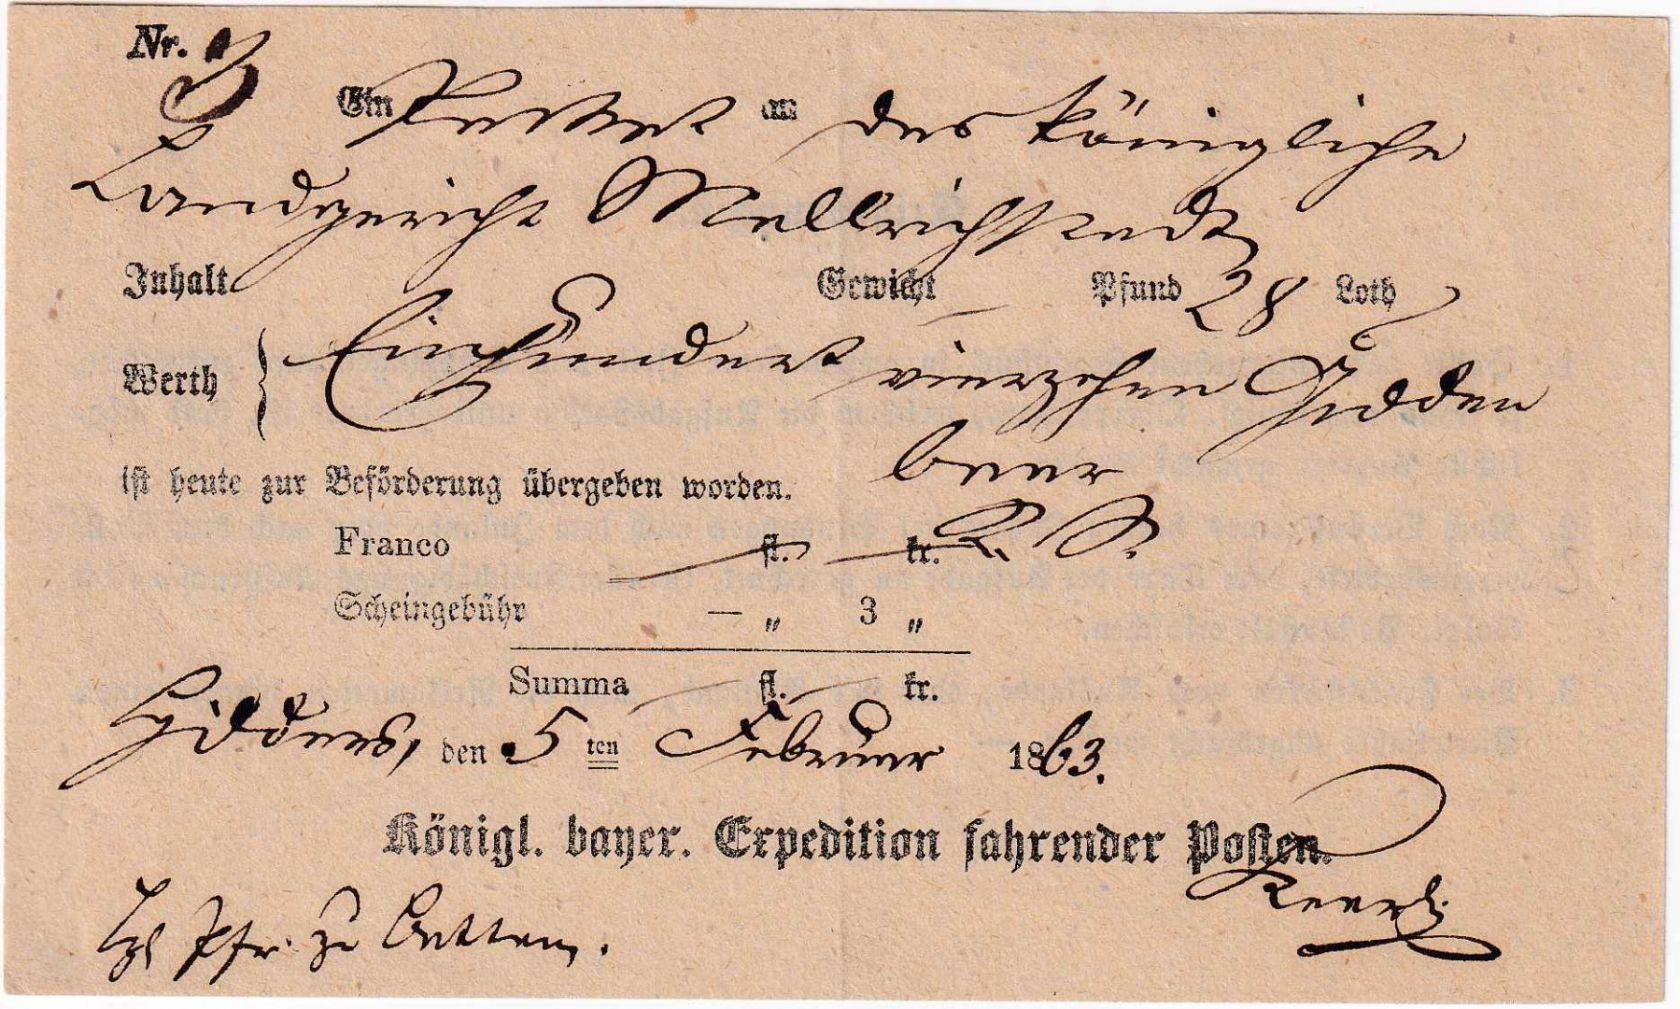 Nr. 3
Ein Packet an das königliche
Landgericht Mellrichstadt
Inhalt Gewicht — Pfund 28 Loth
Werth } Einhundert vierzehen Gulden
baar
ist heute zur Beförderung übergeben worden.
R. S.
Franco — fl. — kr.
Scheingebühr — „ 3 „
Summa — fl. — kr.
Hilders, den 5 ten Februar 1863.
Königl. bayer. Expedition fahrender Posten.
Pfr. zu Batten.